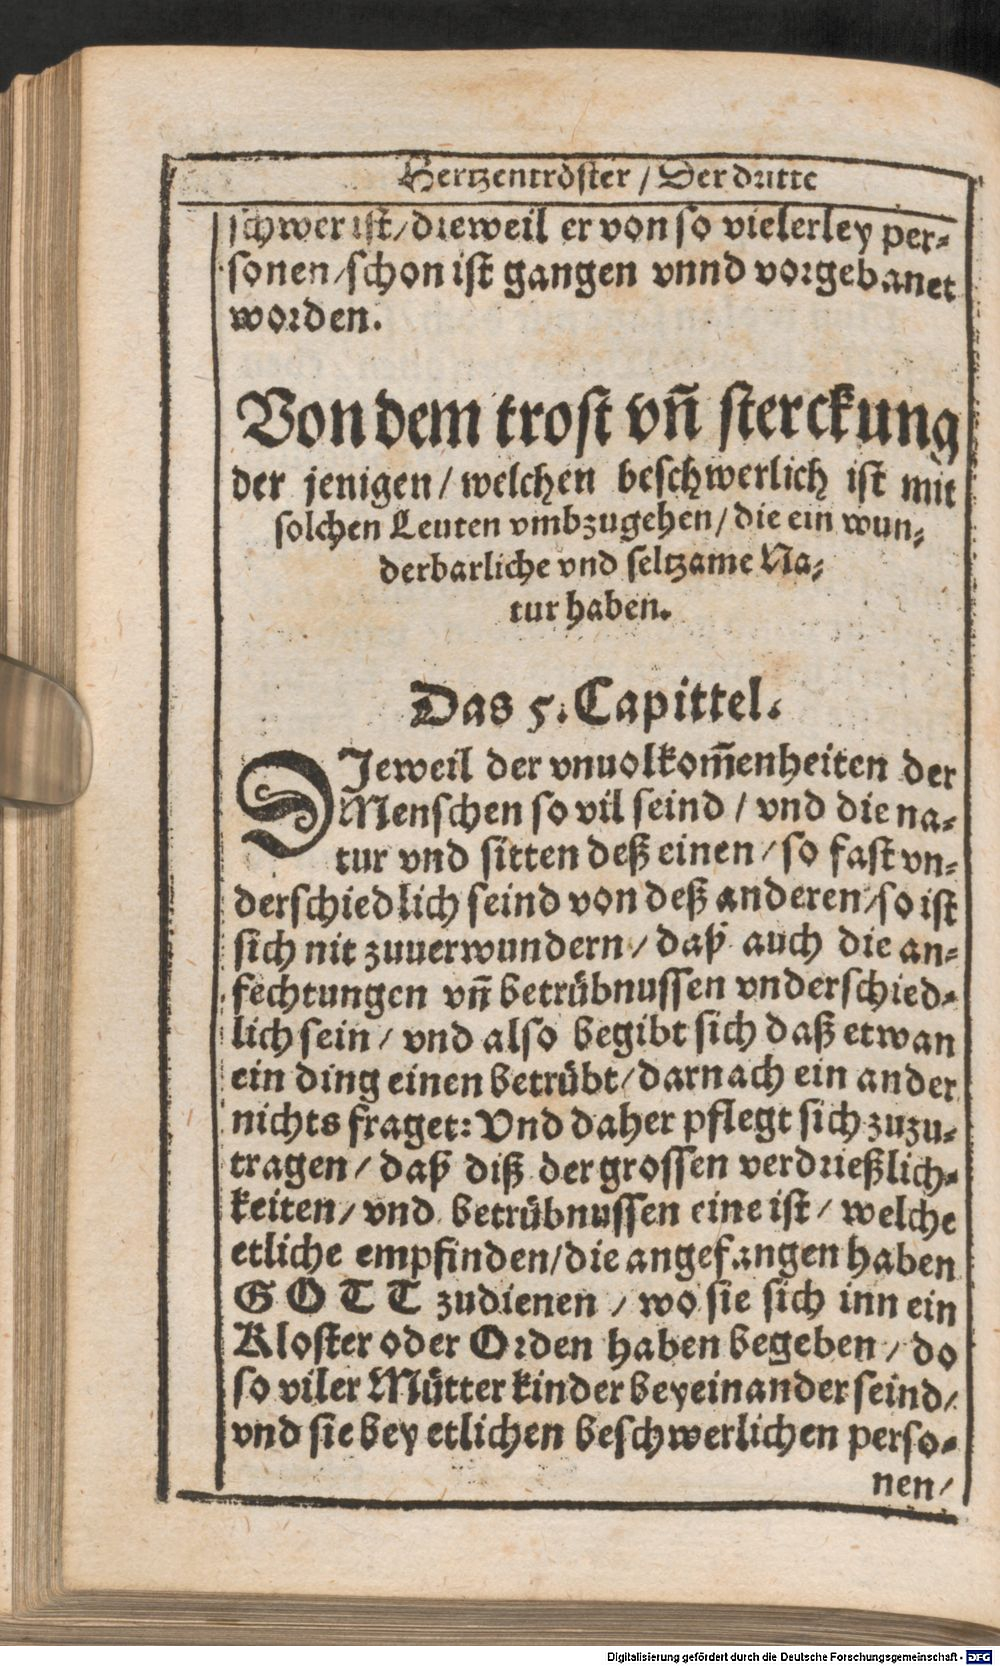 Hertzentröster / Der dritte
schwer ist / dieweil er von so vielerley per-
sonen / schon ist gangen vnnd vorgebanet
worden.
Von dem trost vñ sterckung
der jenigen / welchen beschwerlich ist mit
solchen Leuten vmbzugehen / die ein wun-
derbarliche vnd seltzame Na-
tur haben.
Das 5. Capittel.
DIeweil der vnuolkom̃enheiten der
Menschen so vil seind / vnd die na-
tur vnd sitten deß einen / so fast vn-
derschiedlich seind von deß anderen / so ist
sich nit zuuerwundern / daß auch die an-
fechtungen vñ betrübnussen vnderschied-
lich sein / vnd also begibt sich daß etwan
ein ding einen betrübt / darnach ein ander
nichts fraget: Vnd daher pflegt sich zuzu-
tragen / daß diß der grossen verdrießlich-
keiten / vnd betrübnussen eine ist / welche
etliche empfinden / die angefangen haben
GOTT zudienen / wo sie sich inn ein
Kloster oder Orden haben begeben / do
so viler Mütter kinder beyeinander seind /
vnd sie bey etlichen beschwerlichen perso-
nen /
Digitalisierung gefördert durch die Deutsche Forschungsgemeinschaft - DFG